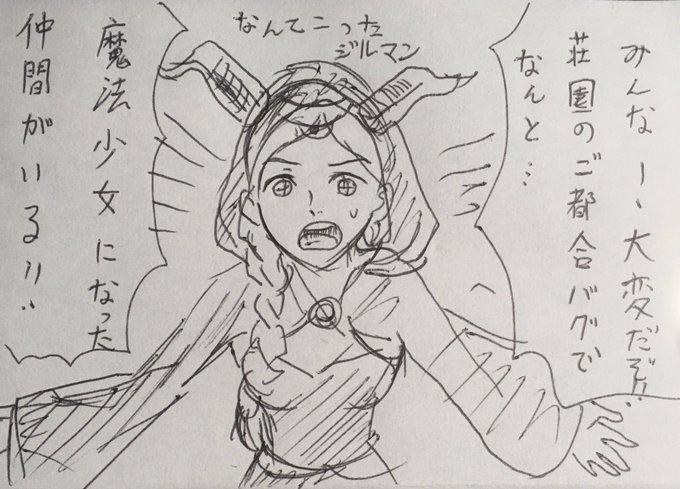 みんなー、大変だぞ!!
荘園のご都合バグで
なんと…
なんてこった
ジルマン
魔法少女になった
仲間がいる!!